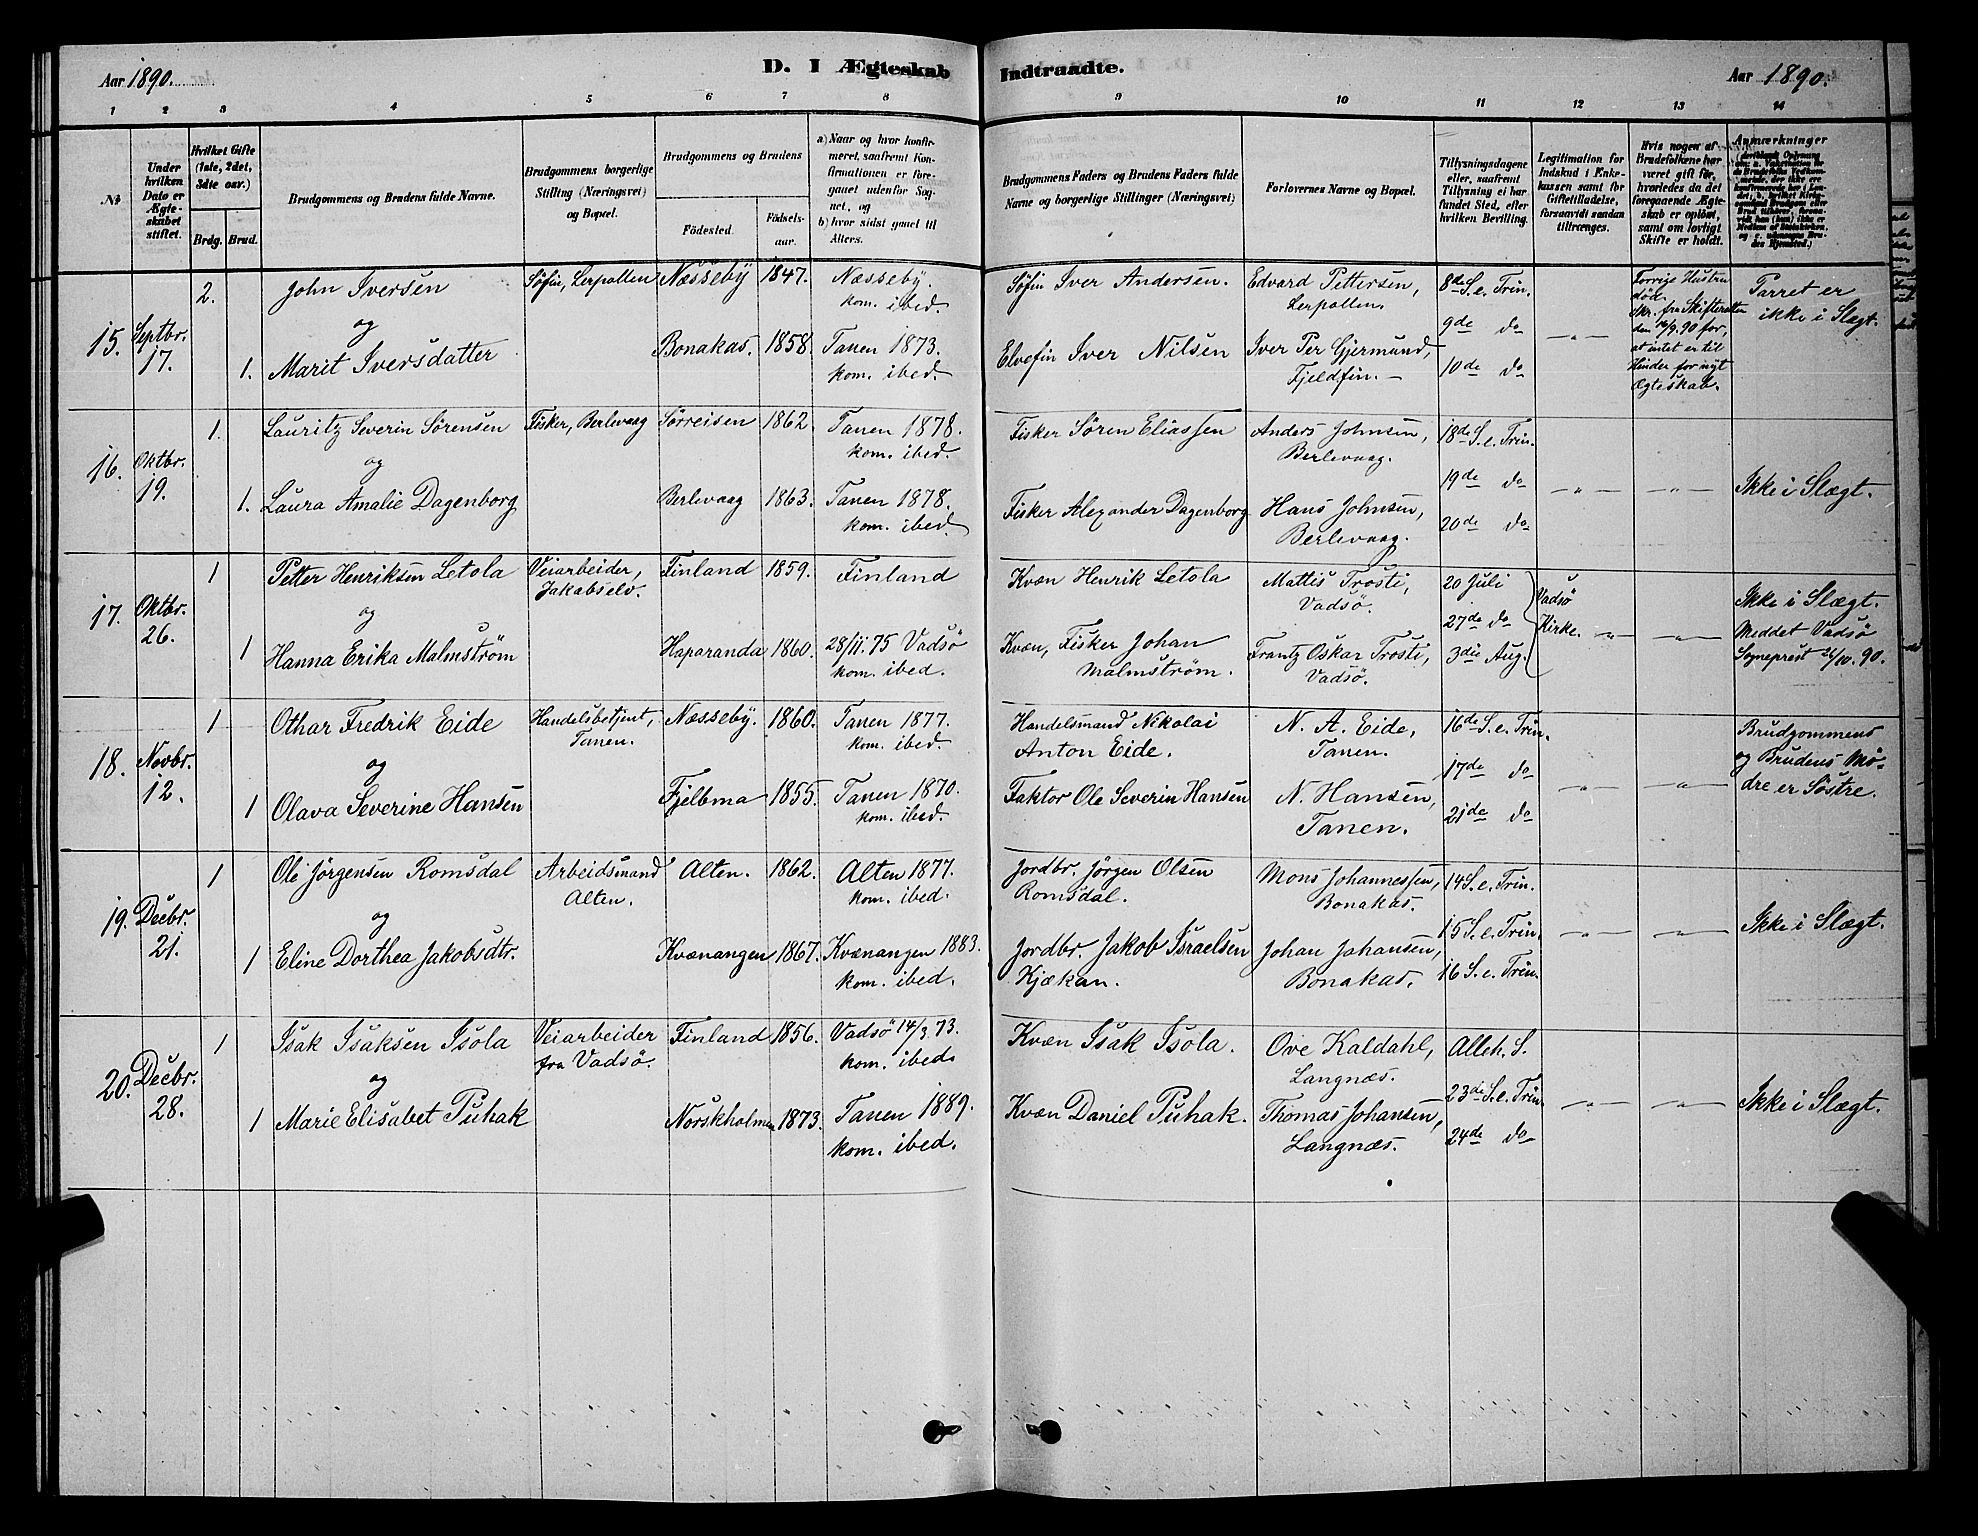 Aar 1890.
D. I Ægteskab Indtraadte.
Aar 1890.
1 2 3 4 5 6 7 8 9 10 11 12 13 14
№
Under hvilken Dato er Ægteskabet stiftet.
Hvilket Gifte (1ste, 2det, 3die osv.)
Brdg. Brud.
Brudgommens og Brudens fulde Navne.
Brudgommens borgerlige Stilling (Næringsvei) og Bopæl.
Brudgommens og Brudens
Födested. Födselsaar.
a) Naar og hvor konfirmeret, saafremt Konfirmationen er foregaaet udenfor Sognet, og
b) hvor sidst gaaet til Alters.
Brudgommens Faders og Brudens Faders fulde Navne og borgerlige Stillinger (Næringsvei)
Forlovernes Navne og Bopæl.
Tillysningsdagene eller, saafremt Tillysning ei har fundet Sted, efter hvilken Bevilling.
Legitimation for Indskud i Enkekassen samt for Giftetilladelse, forsaavidt saadan tiltrænges.
Hvis nogen af Brudefolkene har været gift før, hvorledes da det foregaaende Ægteskab er opløst, samt om lovligt Skifte er holdt.
Anmærkninger
15. Septbr. 17.
2. John Iversen
og
1. Marit Iversdatter
Söfin, Lerpollen
Næsseby 1847. Næsseby. kom. ibed.
Bonakas. 1858. Tanen 1873. kom. ibed.
Söfin Iver Andersen.
Elvefin Iver Nilsen
Edvard Pettersen, Lerpollen.
Iver Per Gjermund, Fjeldfin. —
8de S. e. Trin.
9de do
10de do
—„—
Forrige Hustru død.
Skr. fra Skifteretten
den 16/9. 90 for,
at intet er til
Hinder for nyt
Ægteskab.
Parret er
ikke i Slægt.
16. Oktbr. 19.
1. Lauritz Severin Sørensen
og
1. Laura Amalie Dagenborg
Fisker, Berlevaag
Sørreisen 1862. Tanen 1878. kom. ibed.
Berlevaag 1863. Tanen 1878. kom. ibed.
Fisker Sören Eliassen
Fisker Alexander Dagenborg
Anders Johnsen, Berlevaag.
Hans Johnsen, Berlevaag.
18de S. e. Trin.
19de do
20de do
—„— —„— Ikke i Slægt.
17. Oktbr. 26.
1 Petter Henriksen Letola
og
1 Hanna Erika Malmström
Veiarbeider, Jakobselv.
Finland 1859. Finland
Haparanda 1860. 28/11. 75 Vadsö kom. ibed.
Kvæn Henrik Letola
Kvæn, Fisker Johan Malmström.
Mattis Trosti, Vadsö.
Frantz Oskar Trosti, Vadsö.
20 Juli
27de do
3die Aug.
Vadsö Kirke. —„— —„—
Ikke i Slægt.
Meddet Vadsö
Sogneprest 26/10. 90.
18. Novbr. 12.
1 Othar Fredrik Eide
og
1 Olava Severine Hansen
Handelsbetjent, Tanen.
Næsseby. 1860. Tanen 1877. kom. ibed.
Fjelbma 1855. Tanen 1870. kom. ibed.
Handelsmand Nikolai Anton Eide.
Faktor Ole Severin Hansen
N. A. Eide, Tanen.
N. Hansen, Tanen.
16de S. e. Trin.
17de do
21de do
—„— —„—
Brudgommens
og Brudens Mö-
dre er Söstre.
19. Decbr. 21.
1 Ole Jörgensen Romsdal
og
1 Eline Dorthea Jakobsdtr.
Arbeidsmand Alten.
Alten. 1862. Alten 1877. kom. ibed.
Kvænangen 1867. Kvænangen 1883. kom. ibed.
Jordbr. Jörgen Olsen Romsdal.
Jordbr. Jakob Israelsen Kjækan.
Mons Johannessen, Bonakas.
Johan Johansen, Bonakas.
14 S. e. Trin.
15 S. e. Trin.
16 S. e. Trin.
—„— —„— Ikke i Slægt.
20. Decbr. 28.
1 Isak Isaksen Isola
og
1 Marie Elisabet Puhak
Veiarbeider fra Vadsö.
Finland 1856. Vadsö 14/9 73. kom. ibed.
Norskholmen 1873. Tanen 1889. kom. ibed.
Kvæn Isak Isola.
Kvæn Daniel Puhak.
Ove Kaldahl, Langnæs.
Thomas Johansen, Langnæs.
Alleh. S.
23de S. e. Trin.
24de do
—„— —„— Ikke i Slægt.